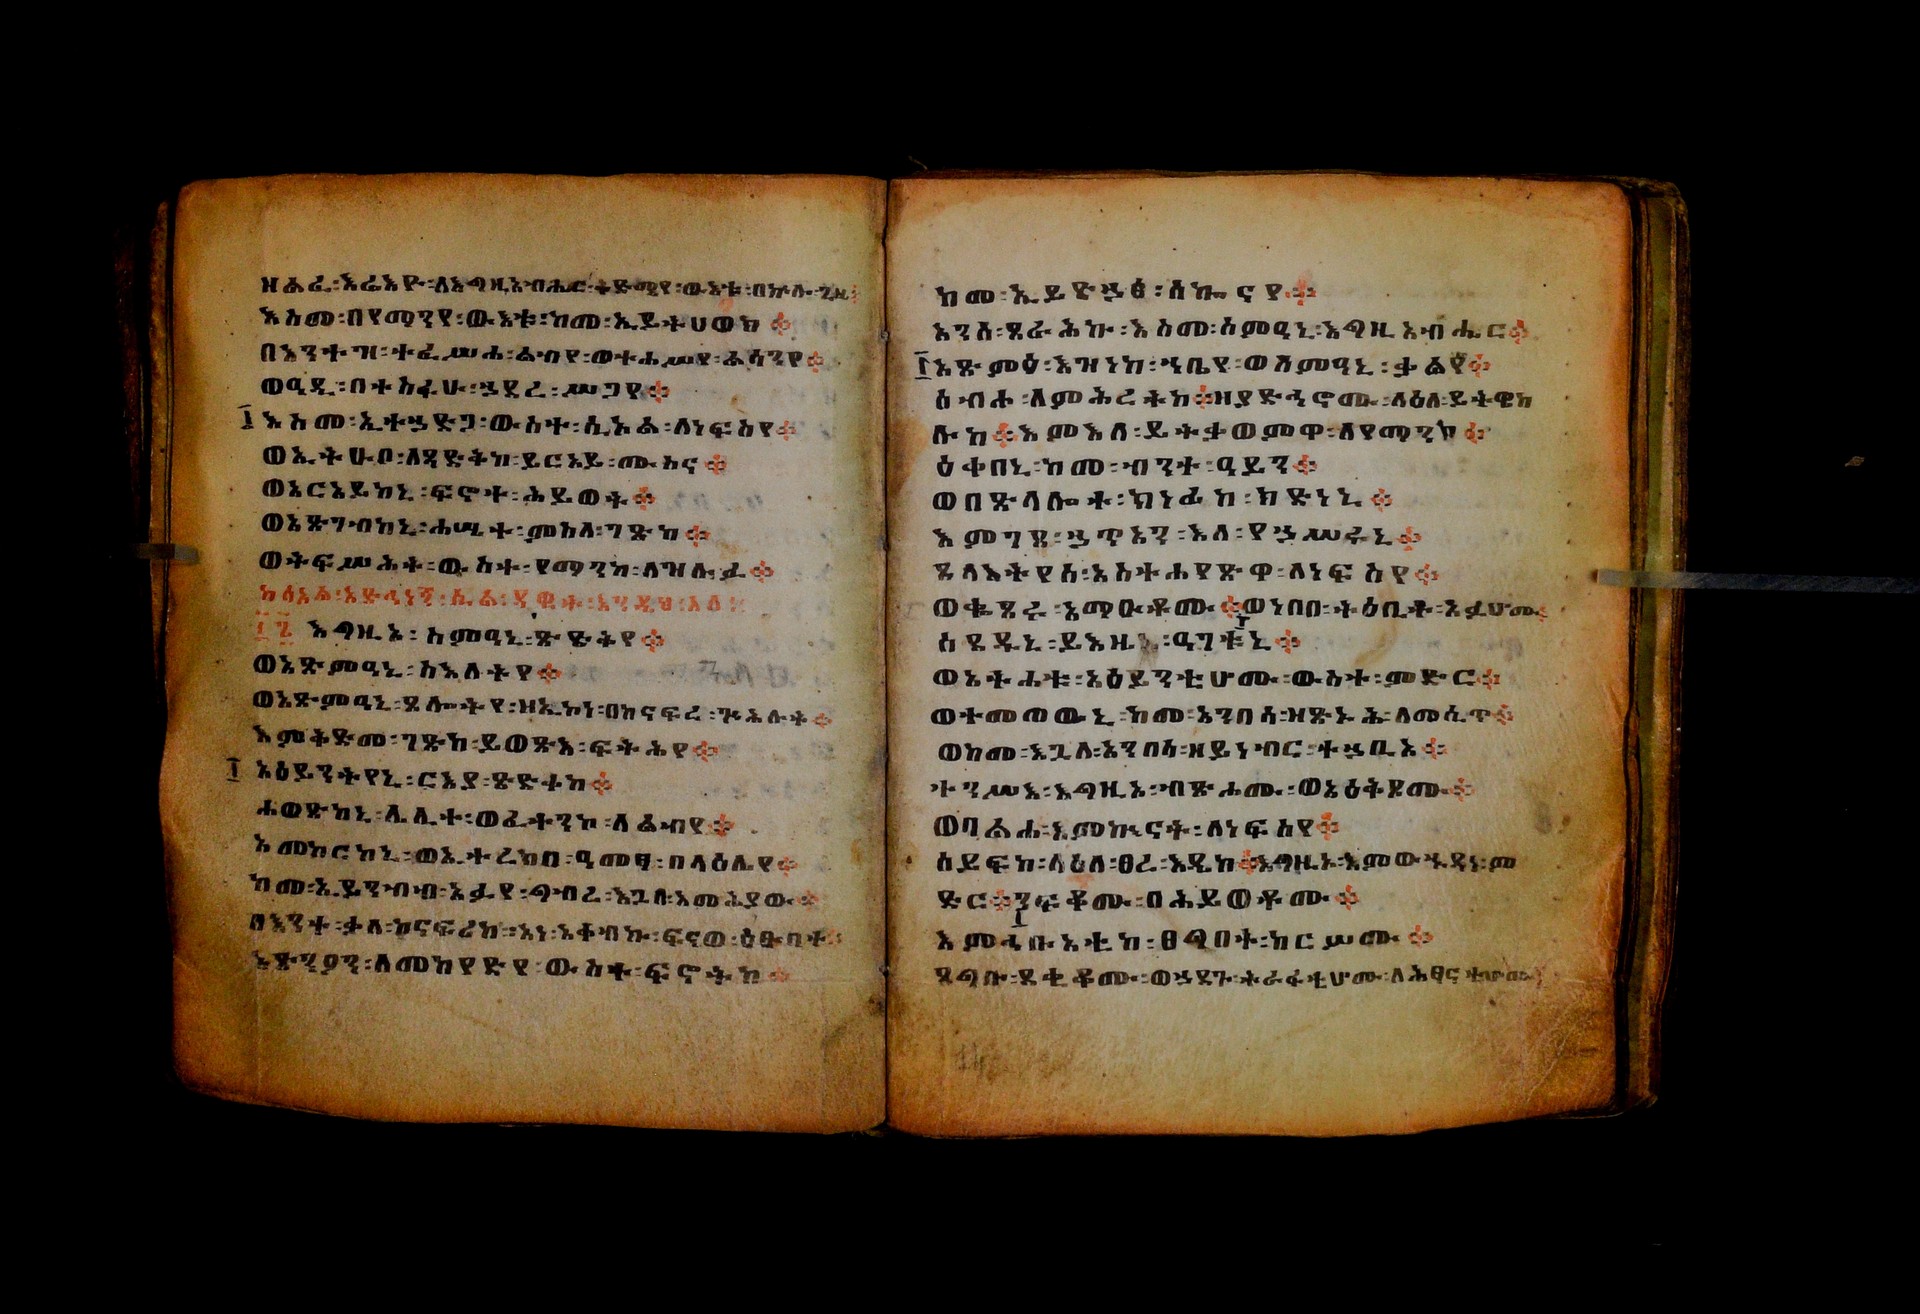 ዘልፈ፡ እሬእዮ፡ ለእግዚአብሔር፡ ቅድሜየ፡ ውእቱ፡ በኵሉ፡ ጊዜ
እስመ፡ በየማንየ፡ ውእቱ፡ ከመ፡ ኢይትሀወክ።
በእንተዝ፡ ተፈሥሐ፡ ልብየ፡ ወተሐሥየ፡ ልሳንየ።
ወዓዲ፡ በተስፋሁ፡ ኀደረ፡ ሥጋየ።
እስመ፡ ኢተኀድጋ፡ ውስተ፡ ሲኦል፡ ለነፍስየ።
ወኢትሁቦ፡ ለጻድቅከ፡ ይርአይ፡ ሙስና።
ወአርአይከኒ፡ ፍኖተ፡ ሕይወት።
ወአጽገብከኒ፡ ሐሤተ፡ ምስለ፡ ገጽከ።
ወትፍሥሕት፡ ውስተ፡ የማንከ፡ ለዝሉፉ።
፲፮ እግዚኦ፡ ስምዓኒ፡ ጽድቅየ።
ወአጽምዓኒ፡ ስእለትየ።
ወአጽምዓኒ፡ ጸሎትየ፡ ዘኢኮነ፡ በከናፍረ፡ ጕሕሉት።
እምቅድመ፡ ገጽከ፡ ይወጽእ፡ ፍትሕየ።
አዕይንትየኒ፡ ርእያ፡ ጽድቀከ።
ሐወጽከኒ፡ ሌሊተ፡ ወፈተንኮ፡ ለልብየ።
አመከርከኒ፡ ወኢተረክበ፡ ዓመፃ፡ በላዕሌየ።
ከመ፡ ኢይንብብ፡ አፉየ፡ ግብረ፡ እጓለ፡ እመሕያው።
በእንተ፡ ቃለ፡ ከናፍሪከ፡ አነ፡ አቀብኩ፡ ፍናወ፡ ዕፁባተ።
አጽንዖን፡ ለመከየድየ፡ ውስተ፡ ፍኖትከ
ከመ፡ ኢይድኀፅ፡ ሰኰናየ።
አንሰ፡ ጸራሕኩ፡ እስመ፡ ሰምዓኒ፡ እግዚአብሔር።
አጽምዕ፡ እዝነከ፡ ኀቤየ፡ ወስምዓኒ፡ ቃልየ።
ሰብሖ፡ ለምሕረትከ። ዘያድኅኖሙ፡ ለዕለ፡ ይትዌከ
ሉከ። እምእለ፡ ይትቃወምዋ፡ ለየማንከ።
ዕቀበኒ፡ ከመ፡ ብንተ፡ ዓይን።
ወበጽላሎተ፡ ክነፊከ፡ ክድነኒ።
እምገጸ፡ ኀጥኣን፡ እለ፡ የኀሥሩኒ።
ጸላእትየሰ፡ አስተሐየጽዋ፡ ለነፍስየ።
ወቈጸሩ፡ አማዑቶሙ። ወነበበ፡ ትዕቢተ፡ አፉሆሙ።
ሰደዱኒ፡ ይእዜኒ፡ ዓገቱኒ።
ወአትሐቱ፡ አዕይንቲሆሙ፡ ውስተ፡ ምድር።
ወተመጠውኒ፡ ከመ፡ አንበሳ፡ ዝጽኑሕ፡ ለመሲጥ።
ወከመ፡ እጓለ፡ አንበሳ፡ ዘይነብር፡ ተኀቢኦ።
ተንሥእ፡ እግዚኦ፡ ብጽሖሙ፡ ወአዕቅጾሙ።
ወባልሐ፡ እምኵናት፡ ለነፍስየ።
ሰይፍከ፡ ላዕለ፡ ፀረ፡ እዴከ። እግዚኦ፡ እምውኁዳነ፡ ም
ድር። ንፍቆሙ፡ በሕይወቶሙ።
እምኅቡአቲከ፡ ፀግበት፡ ከርሦሙ።
ጸግቡ፡ ደቂቆሙ፡ ወኀደጉ፡ ትራፋቲሆሙ፡ ለሕፃናቲሆሙ